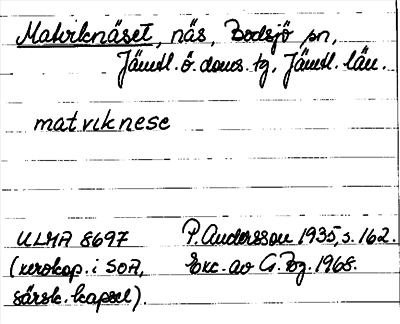 Matviknäset, näs, Bodsjö sn,
Jämtl. ö. doms. tg, Jämtl. län.
matviknese
ULMA 8697 P. Andersson 1935, s. 162.
(xerokop. i SOA, Exc. av G. Bg. 1968.
särsk. kapsel).